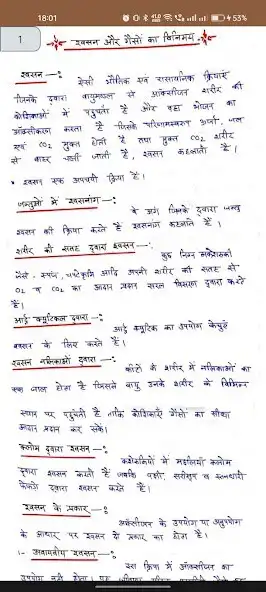 18:01
53%
1
श्वसन और गैसों का विनिमय
श्वसन —:
ऐसी भौतिक एवं रासायनिक क्रियाएं
जिनके द्वारा वायुमण्डल से ऑक्सीजन शरीर की
कोशिकाओं में पहुंचती है और वहां भोजन का
ऑक्सीकरण करता है जिसके परिणामस्वरूप ऊर्जा, जल
एवं CO₂ मुक्त होती है तथा मुक्त CO₂ शरीर
से बाहर चली जाती है, श्वसन कहलाती है।
* श्वसन एक अपचयी क्रिया है।
जन्तुओं में श्वसनांग —:
वे अंग जिनके दुवारा जन्तु
श्वसन की क्रिया करते हैं श्वसनांग कहलाते हैं।
शरीर की सतह दुवारा श्वसन —:
कुछ निम्न
जैसे - स्पंज, चपटेकृमि आदि अपनी शरीर की सतह से
O₂ व CO₂ का आदान प्रदान सरल विसरण दुवारा करते
हैं।
आर्द्र क्यूटिकल दुवारा —:
आर्द्र क्यूटिक का उपयोग केंचुएं
श्वसन के लिए करते हैं।
श्वसन नलिकाओं दुवारा —:
कीटों के शरीर में नलिकाओं का
एक जाल होता है जिनसे वायु उनके शरीर के विभिन्न
स्थान पर पहुंचती है ताकि कोशिकाएं गैसों का सीधा
आदान प्रदान कर सकें।
क्लोम दुवारा श्वसन —:
कशेरुकियों में मछलियां क्लोम
दुवारा श्वसन करती हैं जबकि पक्षी, सरीसृप व स्तनधारी
फेफड़ो दुवारा श्वसन करते हैं।
श्वसन के प्रकार —:
ऑक्सीजन के उपयोग या अनुपयोग
के आधार पर श्वसन दो प्रकार का होता है।
1- अवायवीय श्वसन —:
इस क्रिया में ऑक्सीजन का
उपयोग नहीं होता।